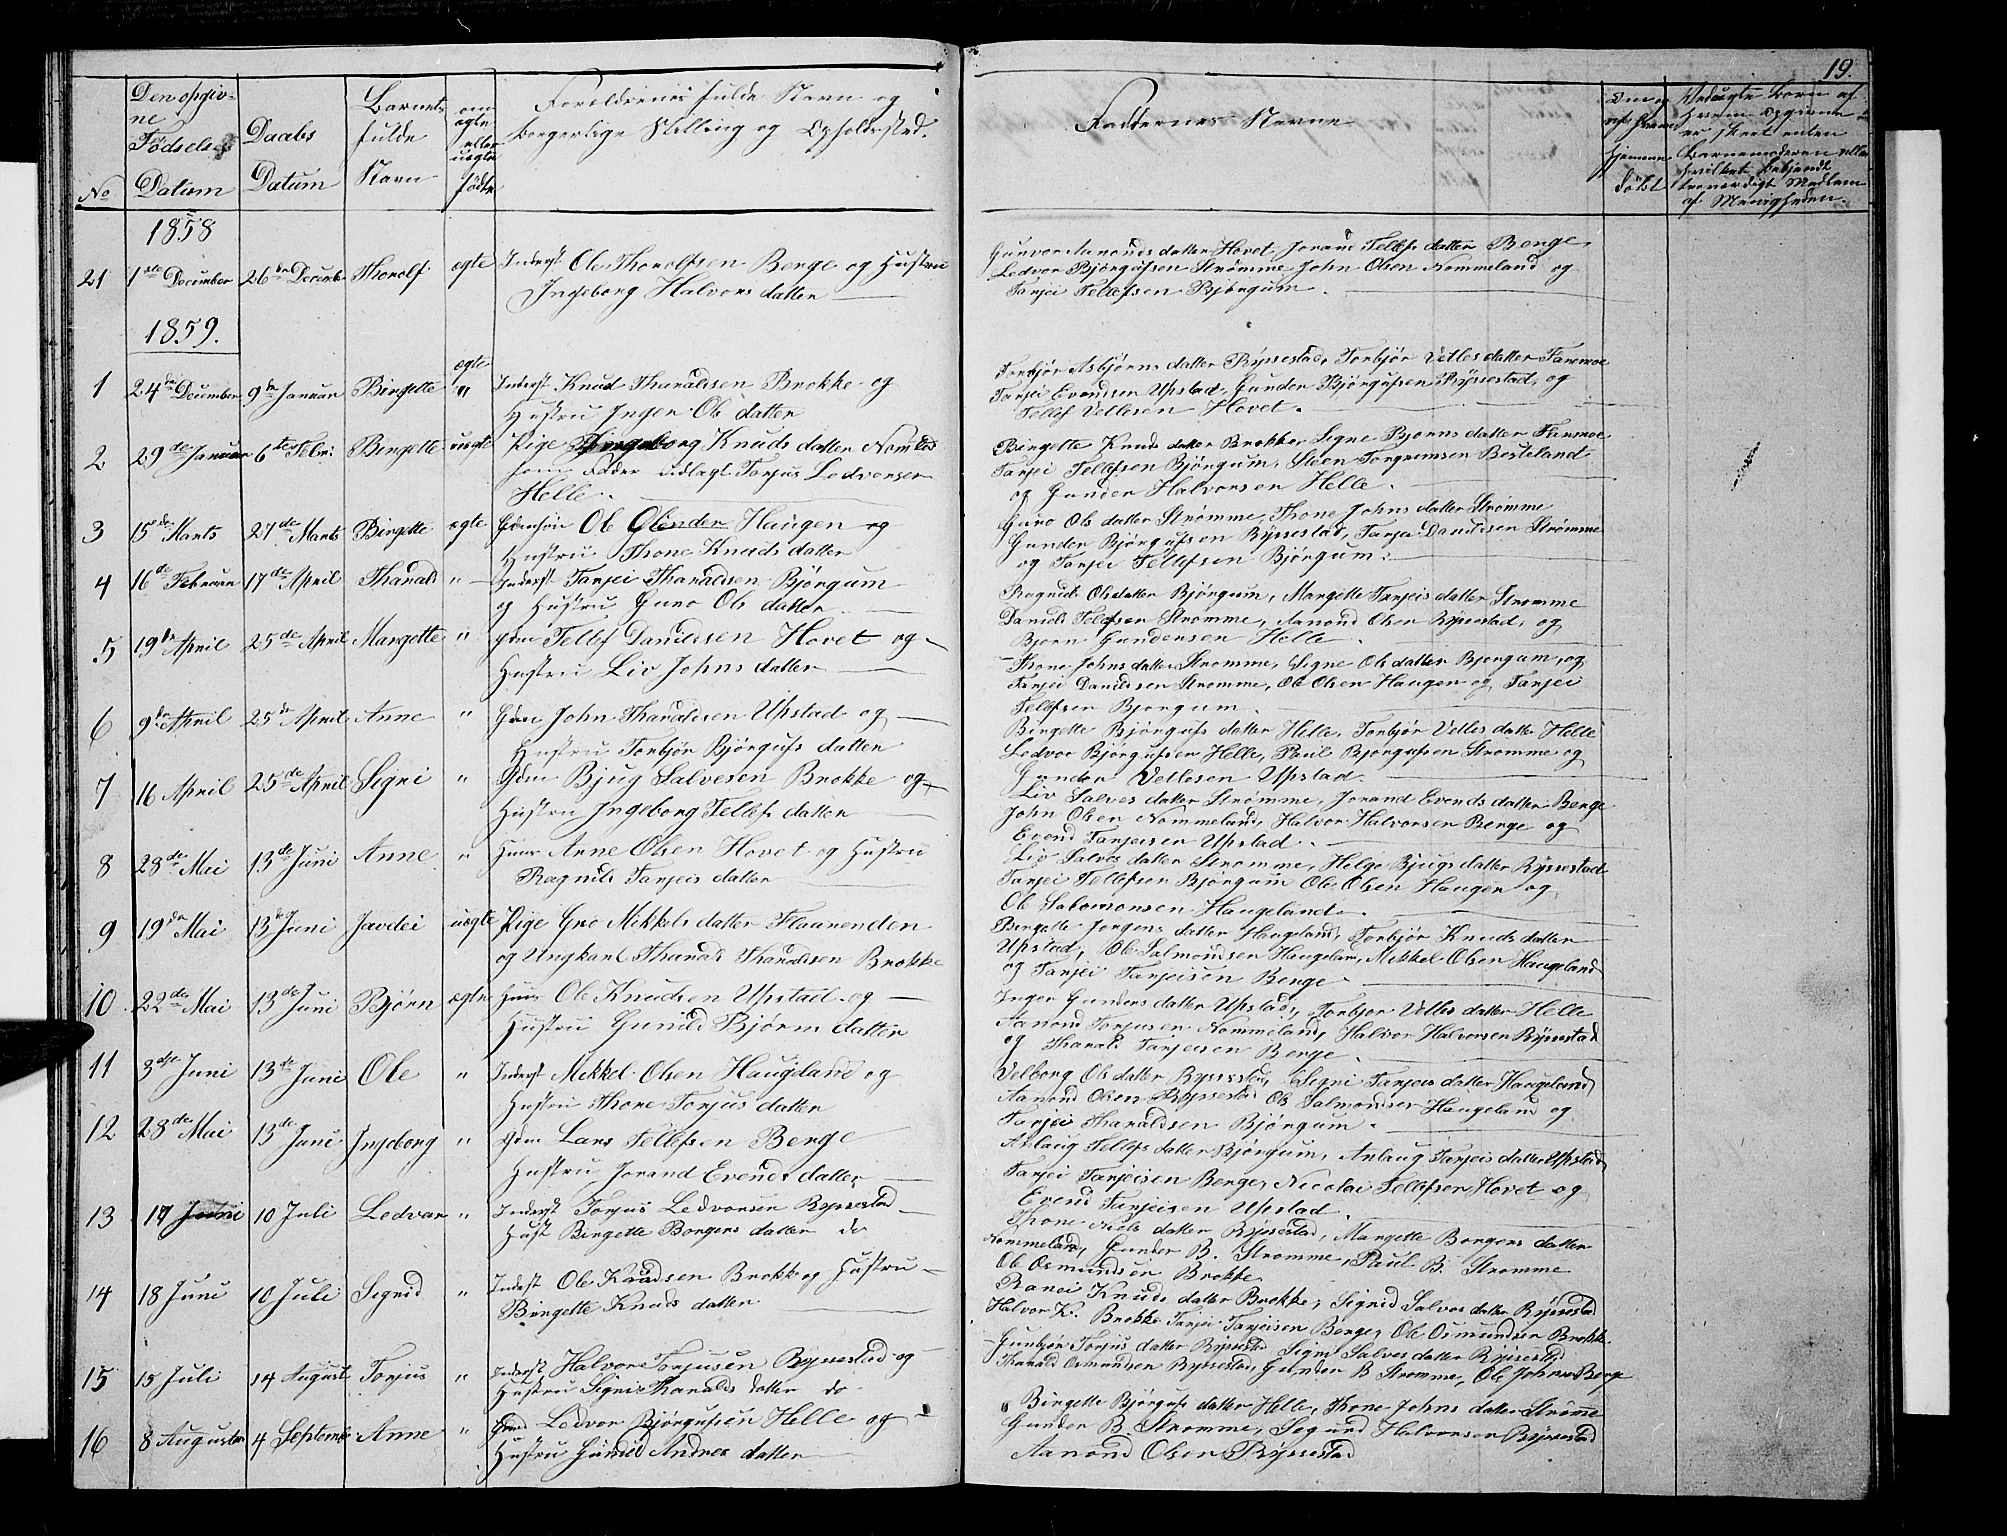 19.
Den opgiv-
ne
Fødsels
Datum
No
Daabs
Datum
Barnets
fulde
Navn
om
ægte
eller
uægte
født
Forældrenes fulde Navn og
borgerlige Stilling og Opholdssted.
Faddernes Navne
hjemme
døbt
Veduægte Børn af
hvem Opgivne
er skeet enten
Barnemoderen eller
hvilket bekjendt
troværdigt Medlem
af Menigheden.
1858
21 1ste December 26de Decemb Thorolf ægte Inderst Ole Thorolfsen Berge og Hustru
Ingeborg Halvors datter
Gunvor Aanonds datter Hovet Joran Tellefs datter Berge,
Ledvor Bjørgufsen Strømme, John Olsen Nommeland og
Tarjei Tellefsen Bjørgum.
1859.
1 24de December 9de Januar Birgette ægte " Inderst Knud Tharaldsen Brokke og
Hustru Inger Ols datter
Torbjør Asbjørns datter Rysestad, Torbjør Vetles datter Farremoe
Tarjei Evendsen Upstad, Gunder Bjørgufsen Rysestad, og
Tellef Vetlesen Hovet.
2 29de Januar 6te Febr: Birgette uægte Pige Ingeborg Knuds datter Nomelad
som Fader udlagt Torjus Ledvorsen
Helle.
Birgette Knuds datter Brokke, Signe Bjørns datter Farrmoe
Tarjei Tellefsen Bjørgum, Steen Torgrimsen Besteland
og Gunder Halvorsen Helle.
3 15de Marts 27de Marts Birgitte ægte Ole Haugen og
Hustru Thone Knuds datter
Guro Ols datter Strømme, Thone Johns datter Strømme
Gunder Bjørgufsen Rysestad, Tarjei Danielsen Strømme
og Tarjei Tellefsen Bjørgum.
4 16de Februar 17de April Tharald " Inderst Tarjei Tharaldsen Bjørgum
og Hustru Guro Ols datter
Ragnild Olsdatter Bjørgum, Margette Tarjeis datter Strømme
Daniel Tellefsen Strømme, Aanond Olsen Rysestad, og
Bjørn Gundersen Helle.
5 19de April 25de April Margette " Gdm Tellef Danielsen Hovet og
Hustru Liv Johns datter
Thone Johns datter Strømme, Signe Ols datter Bjørgum, og
Tarjei Danielsen Strømme, Ole Olsen Haugen og Tarjei
Tellefsen Bjørgum.
6 9de April 25de April Anne " Gdm John Tharaldsen Upstad og
Hustru Torbjør Bjørgufs datter
Birgette Bjørgufs datter Helle, Torbjør Vetles datter Helle
Ledvor Bjørgufsen Helle, Paul Bjørgufsen Strømme og
Gunder Vetlesen Upstad.
7 16 April 25de April Signi " Gdm Bjug Salvesen Brokke og
Hustru Ingeborg Tellefs datter
Liv Salves datter Strømme, Jorand Evends datter Berge
John Olsen Nommeland, Halvor Halvorsen Berge og
Evend Tarjeisen Upstad.
8 28de Mai 13de Juni Anne " Huus Anne Olsen Hovet og Hustru
Ragnild Tarjeis datter
Liv Salves datter Strømme, Helge Bjugs datter Rysestad
Tarjei Tellefsen Bjørgum Ole Olsen Haugen og
Ole Salomonsen Haugeland.
9 19de Mai 13de Juni Javdei uægte Pige Gro Mikkels datter Flaarenden
og Ungkarl Tharald Tharaldsen Brokke
Birgette Jørgens datter Haugeland, Torbjør Knuds datter
Upstad, Ole Salmondsen Haugelan, Mikkel Olsen Haugeland
og Tarjei Tarjeisen Berge.
10 22de Mai 13de Juni Bjørn ægte Huus Ole Knudsen Upstad og
Hustru Gunild Bjørns datter
Inger Gunders datter Upstad, Torbjør Vetles datter Helle
Aanond Torjusen Nommeland, Halvor Halvorsen Rysestad
og Tharald Tarjeisen Berge.
11 3die Juni 13de Juni Ole " Inderst Mikkel Olsen Haugeland og
Hustru Thone Torjus datter
Velborg Ols datter Rysestad, Signi Tarjeis datter Haugeland
Aanond Olsen Rysestad Ole Salmondsen Haugeland og
Tarjei Tharaldsen Bjørgum.
12 28de Mai 13de Juni Ingeborg " Gdm Lars Tellefsen Berge
Hustru Jorand Evends datter
Aslaug Tellefs datter Bjørgum, Anlaug Tarjeis datter Upstad
Tarjei Tarjeisen Berge, Nicolai Tellefsen Hovet og
Evend Tarjeisen Upstad.
13 17 Juni 10 Juli Ledvar " Inderst Torjus Ledvorsen Rysestad
Hust Birgette Borgers datter do
Thone Niels datter Rysestad, Margette Borgers datter
Nommeland, Gunder B. Strømme, Paul B. Strømme
Ole Osmundsen Brokke
14 18 Juni 10 Juli Sigrid " Inderst Ole Knudsen Brokke og Hustru
Birgette Knuds datter
Ranei Knuds datter Brokke, Sigrid Salves datter Rysestad
Halvor K. Brokke Tarjei Tarjeisen Berge, Ole Osmundsen Brokke.
15 15 Juli 14 August Torjus " Inderst Halvor Torjusen Rysestad og
Hustru Signi Tharalds datter do
Gunbjør Torjus datter Rysestad Signi Salves datter Rysestad
Tharald Osmundsen Rysestad, Gunder B Strømme, Ole Johnsen Berge
16 8 Augustus 4 Septemb Anne " Gmd Ledvor Bjørgufsen Helle og
Hustru Gunild Andres datter
Birgette Bjørgufs datter Helle, Thone Johns datter Strømme
Gunder B. Strømme, Sigurd Halvorsen Rysestad
Aanond Olsen Rysestad